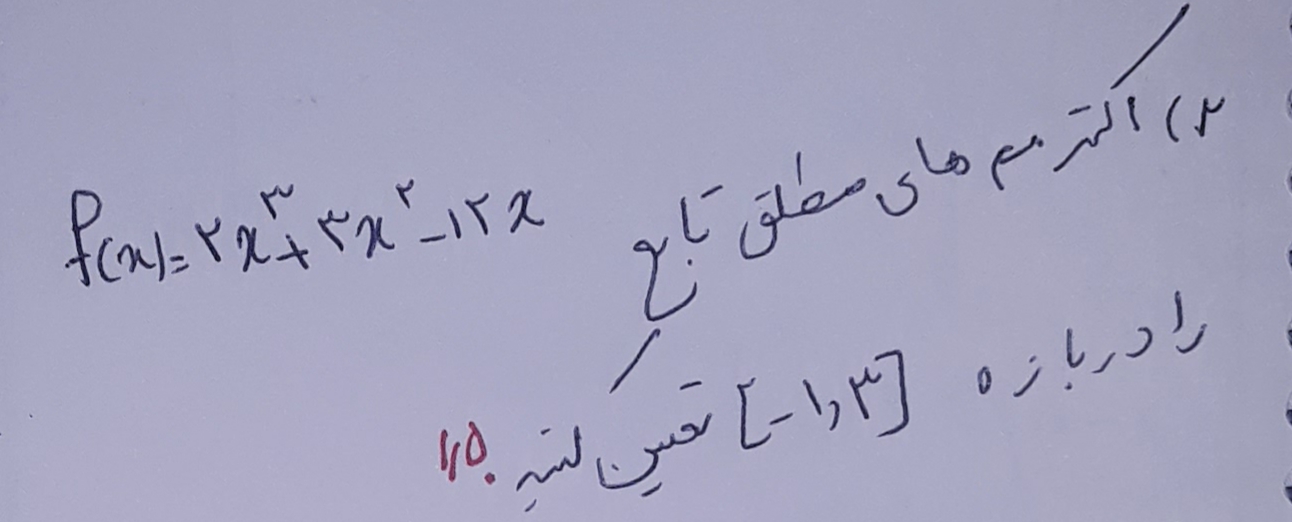 ۲) اکسترمم های مطلق تابع f(x)=۲x^۳+۳x^۲-۱۲x
را در بازه [-۱,۳] تعیین کنید. ۱,۵